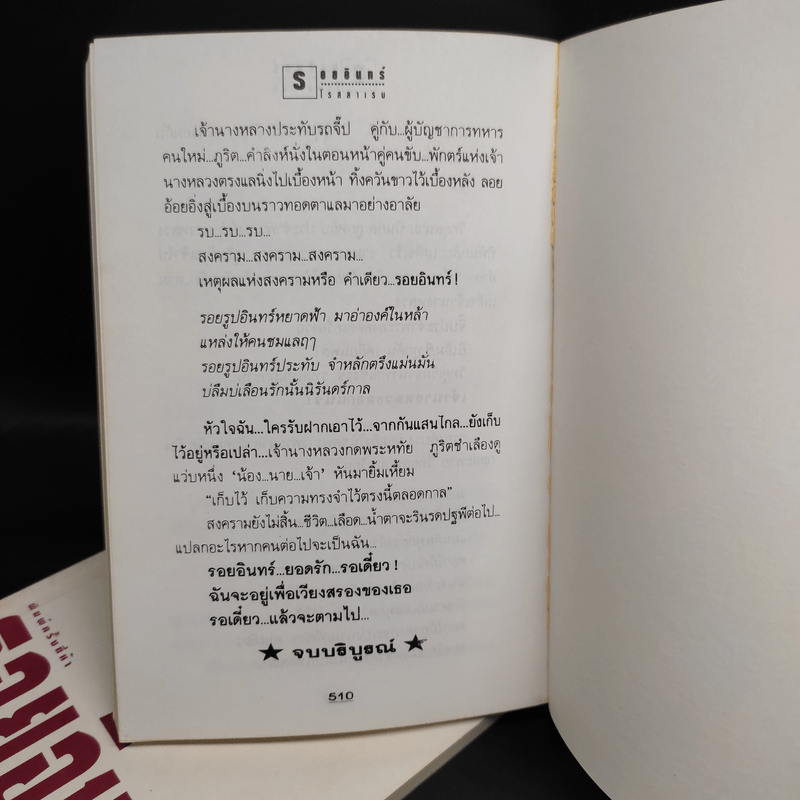 รอยอินทร์
โรสลาเรน
เจ้านางหลวงประทับรถจี๊ป คู่กับ...ผู้บัญชาการทหาร
คนใหม่...ภูริต...คำสิงห์นั่งในตอนหน้าคู่คนขับ...พักตร์แห่งเจ้า
นางหลวงตรงแลนิ่งไปเบื้องหน้า ทิ้งควันขาวไว้เบื้องหลัง ลอย
อ้อยอิ่งสู่เบื้องบนราวทอดตาแลมาอย่างอาลัย
รบ...รบ...รบ...
สงคราม...สงคราม...สงคราม...
เหตุผลแห่งสงครามหรือ คำเดียว...รอยอินทร์!
รอยรูปอินทร์หยาดฟ้า มาอ่าองค์ในหล้า
แหล่งให้คนชมแลฤๅ
รอยรูปอินทร์ประทับ จำหลักตรึงแม่นมั่น
บ่ลืมบ่เลือนรักนั้นนิรันดร์กาล
หัวใจฉัน...ใครรับฝากเอาไว้...จากกันแสนไกล...ยังเก็บ
ไว้อยู่หรือเปล่า...เจ้านางหลวงกดพระหทัย ภูริตชำเลืองดู
แว่บหนึ่ง ‘น้อง...นาย...เจ้า’ หันมายิ้มเหี้ยม
“เก็บไว้ เก็บความทรงจำไว้ตรงนี้ตลอดกาล”
สงครามยังไม่สิ้น...ชีวิต...เลือด...น้ำตาจะรินรดปฐพีต่อไป...
แปลกอะไรหากคนต่อไปจะเป็นฉัน...
รอยอินทร์...ยอดรัก...รอเดี๋ยว!
ฉันจะอยู่เพื่อเวียงสรองของเธอ
รอเดี๋ยว...แล้วจะตามไป...
★ จบบริบูรณ์ ★
510